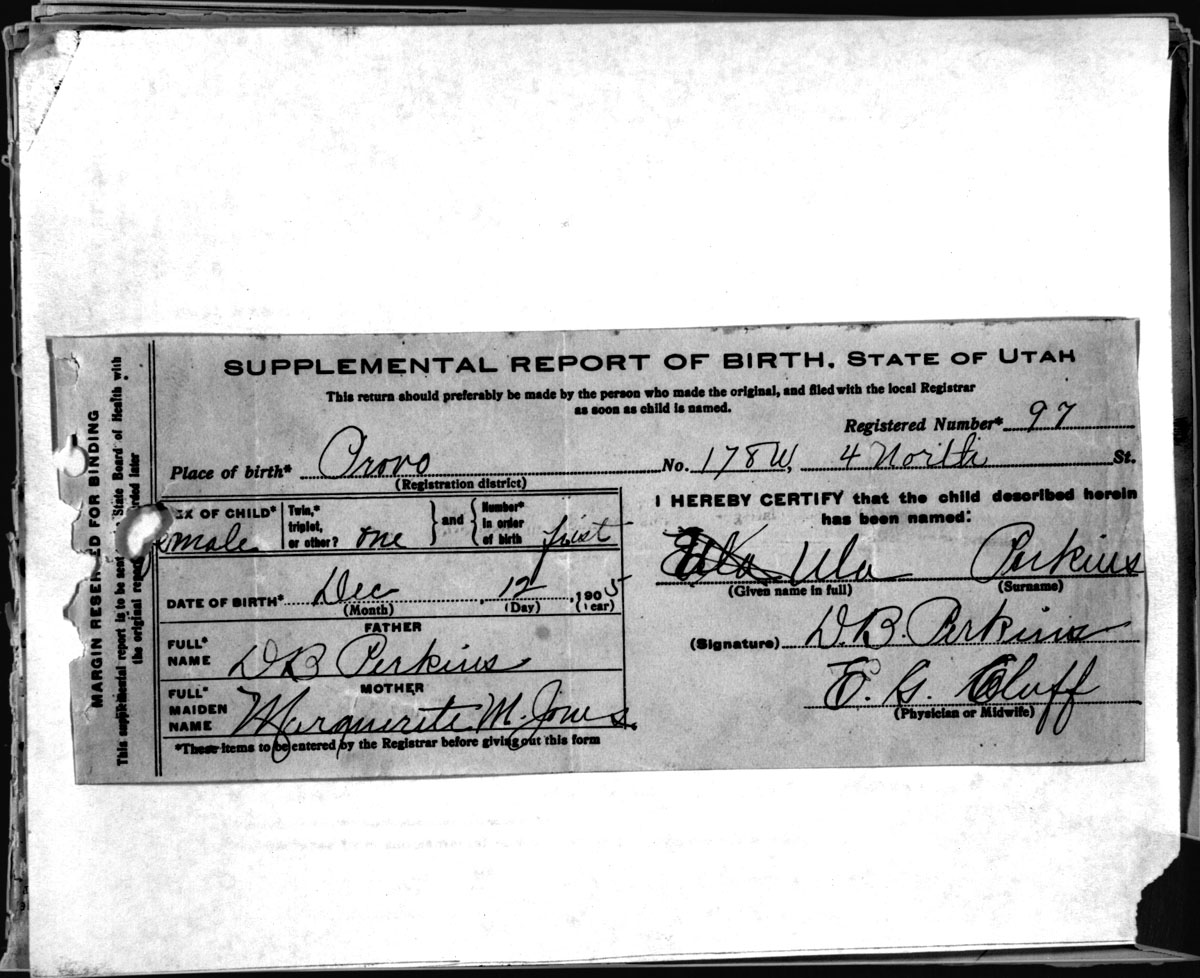 SUPPLEMENTAL REPORT OF BIRTH, STATE OF UTAH
This return should preferably be made by the person who made the original, and filed with the local Registrar
as soon as child is named.
Registered Number* 97
Place of birth* Provo No. 178 W, 4 North St.
(Registration district)
I HEREBY CERTIFY that the child described herein
has been named:
SEX OF CHILD* emale
Twin,* triplet, or other? one
and
Number* in order of birth first
Ula Perkins
(Given name in full) (Surname)
DATE OF BIRTH* Dec, 12, 1905
(Month) (Day) (Year)
FATHER
FULL* NAME D B Perkins
(Signature) D. B. Perkins
MOTHER
FULL* MAIDEN NAME Marguerite M. Jones
E. G. Cluff
(Physician or Midwife)
*These items to be entered by the Registrar before giving out this form
MARGIN RESERVED FOR BINDING
This supplemental report is to be sent State Board of Health with
the original report rded later